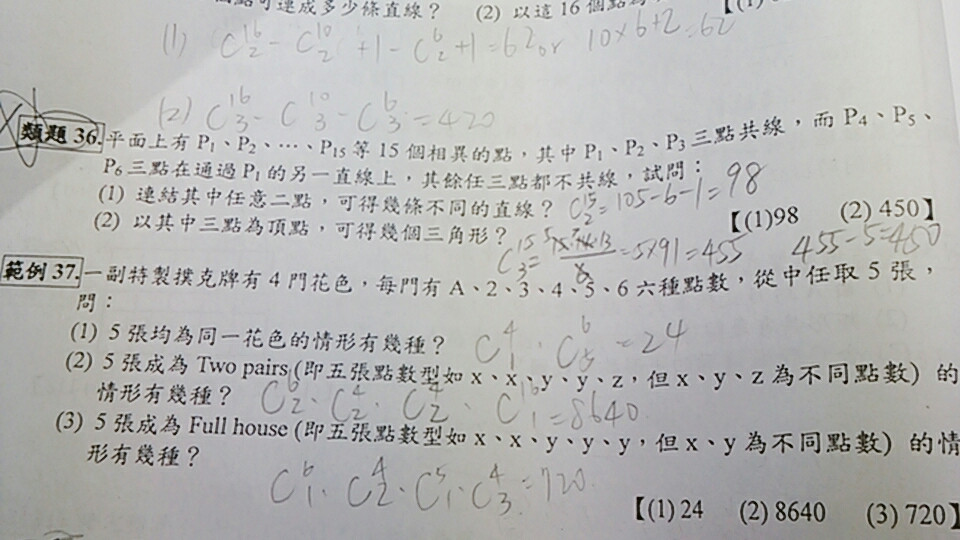 個點可連成多少條直線？ (2) 以這16個點為
(1) C₂¹⁶ - C₂¹⁰ + 1 - C₂⁶ + 1 = 62 or 10×6+2=62
(2) C₃¹⁶ - C₃¹⁰ - C₃⁶ = 420
類題 36. 平面上有 P₁、P₂、…、P₁₅ 等 15 個相異的點，其中 P₁、P₂、P₃ 三點共線，而 P₄、P₅、
P₆ 三點在通過 P₁ 的另一直線上，其餘任三點都不共線，試問：
(1) 連結其中任意二點，可得幾條不同的直線？ C₂¹⁵=105-6-1=98
【(1)98 (2) 450】
(2) 以其中三點為頂點，可得幾個三角形？
=5×91=455 455-5=450
範例 37. 一副特製撲克牌有 4 門花色，每門有 A、2、3、4、5、6 六種點數，從中任取 5 張，
問：
(1) 5 張均為同一花色的情形有幾種？ C₁⁴ · C₅⁶ = 24
(2) 5 張成為 Two pairs (即五張點數型如 x、x、y、y、z，但 x、y、z 為不同點數) 的
情形有幾種？ C₂⁶ · C₂⁴ · C₂⁴ · C₁¹⁶ = 8640
(3) 5 張成為 Full house (即五張點數型如 x、x、y、y、y，但 x、y 為不同點數) 的情
形有幾種？ C₁⁶ · C₂⁴ · C₁⁵ · C₃⁴ = 720
【(1) 24 (2) 8640 (3) 720】